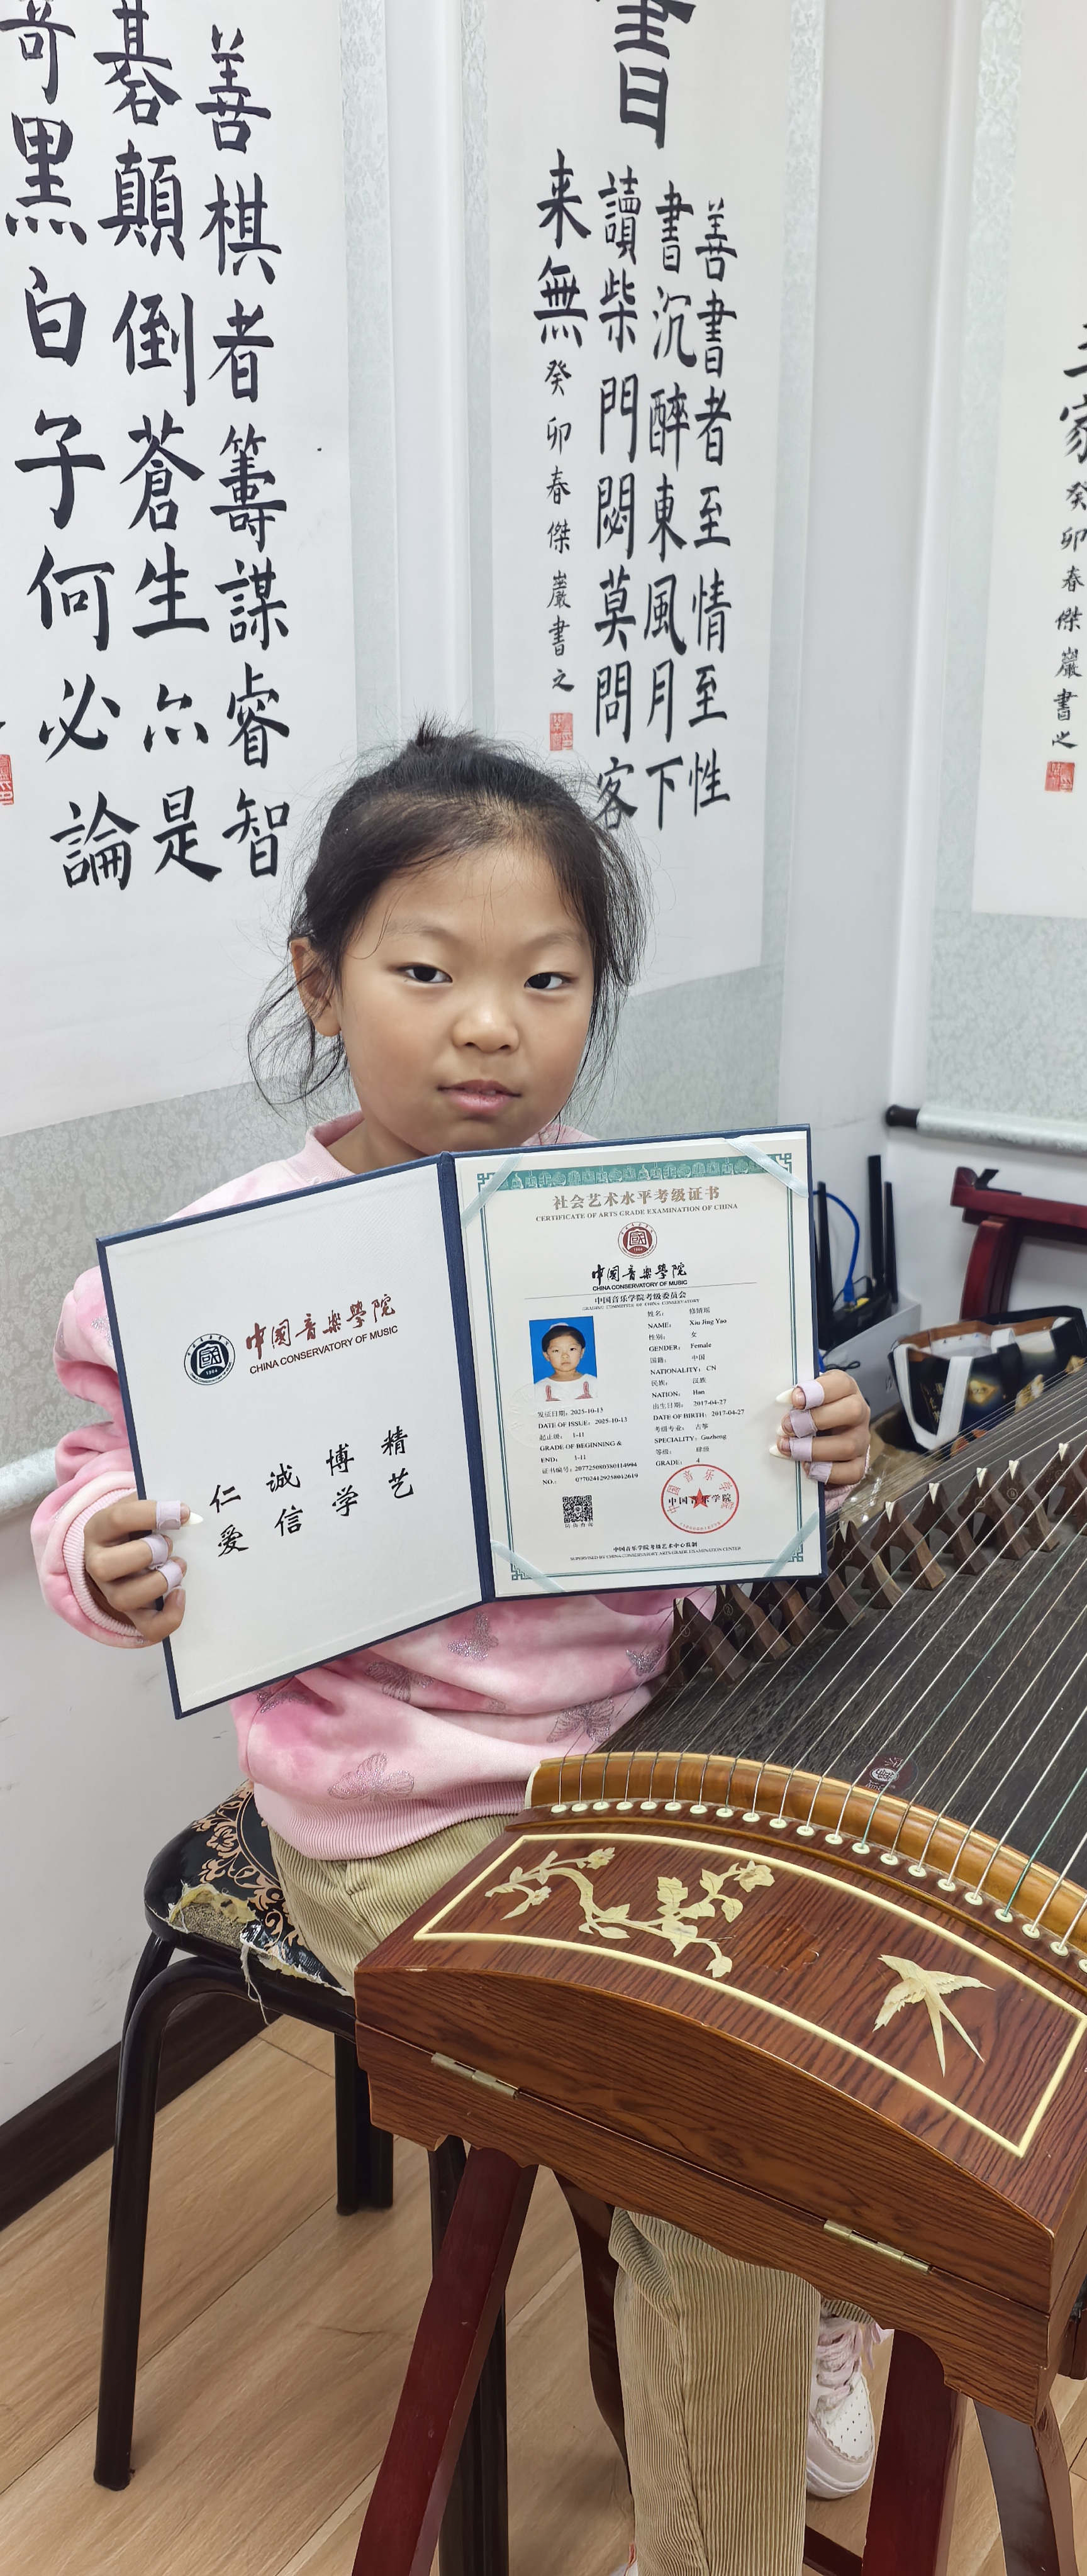 善棋者籌謀睿智
碁顛倒蒼生亦是
奇黑白子何必論
書
善書者至情至性
書沉醉東風月下
讀柴門閟莫問客
来無
癸卯春傑巖書之
癸卯春傑巖書之
中國音樂學院
CHINA CONSERVATORY OF MUSIC
精艺
博学
诚信
仁爱
社会艺术水平考级证书
CERTIFICATE OF ARTS GRADE EXAMINATION OF CHINA
中國音樂學院
CHINA CONSERVATORY OF MUSIC
中国音乐学院考级委员会
GRADING COMMITTEE OF CHINA CONSERVATORY
姓名: 修婧瑶
NAME: Xiu Jing Yao
性别: 女
GENDER: Female
国籍: 中国
NATIONALITY: CN
民族: 汉族
NATION: Han
出生日期: 2017-04-27
DATE OF BIRTH: 2017-04-27
考级专业: 古筝
SPECIALITY: Guzheng
等级: 肆级
GRADE: 4
发证日期: 2025-10-13
DATE OF ISSUE: 2025-10-13
起止级: 1-11
GRADE OF BEGINNING &
END: 1-11
证书编号: 207725080380114994
NO.: 077024129258012619
中国音乐学院
中国音乐学院考级艺术中心监制
SUPERVISED BY CHINA CONSERVATORY ARTS GRADE EXAMINATION CENTER